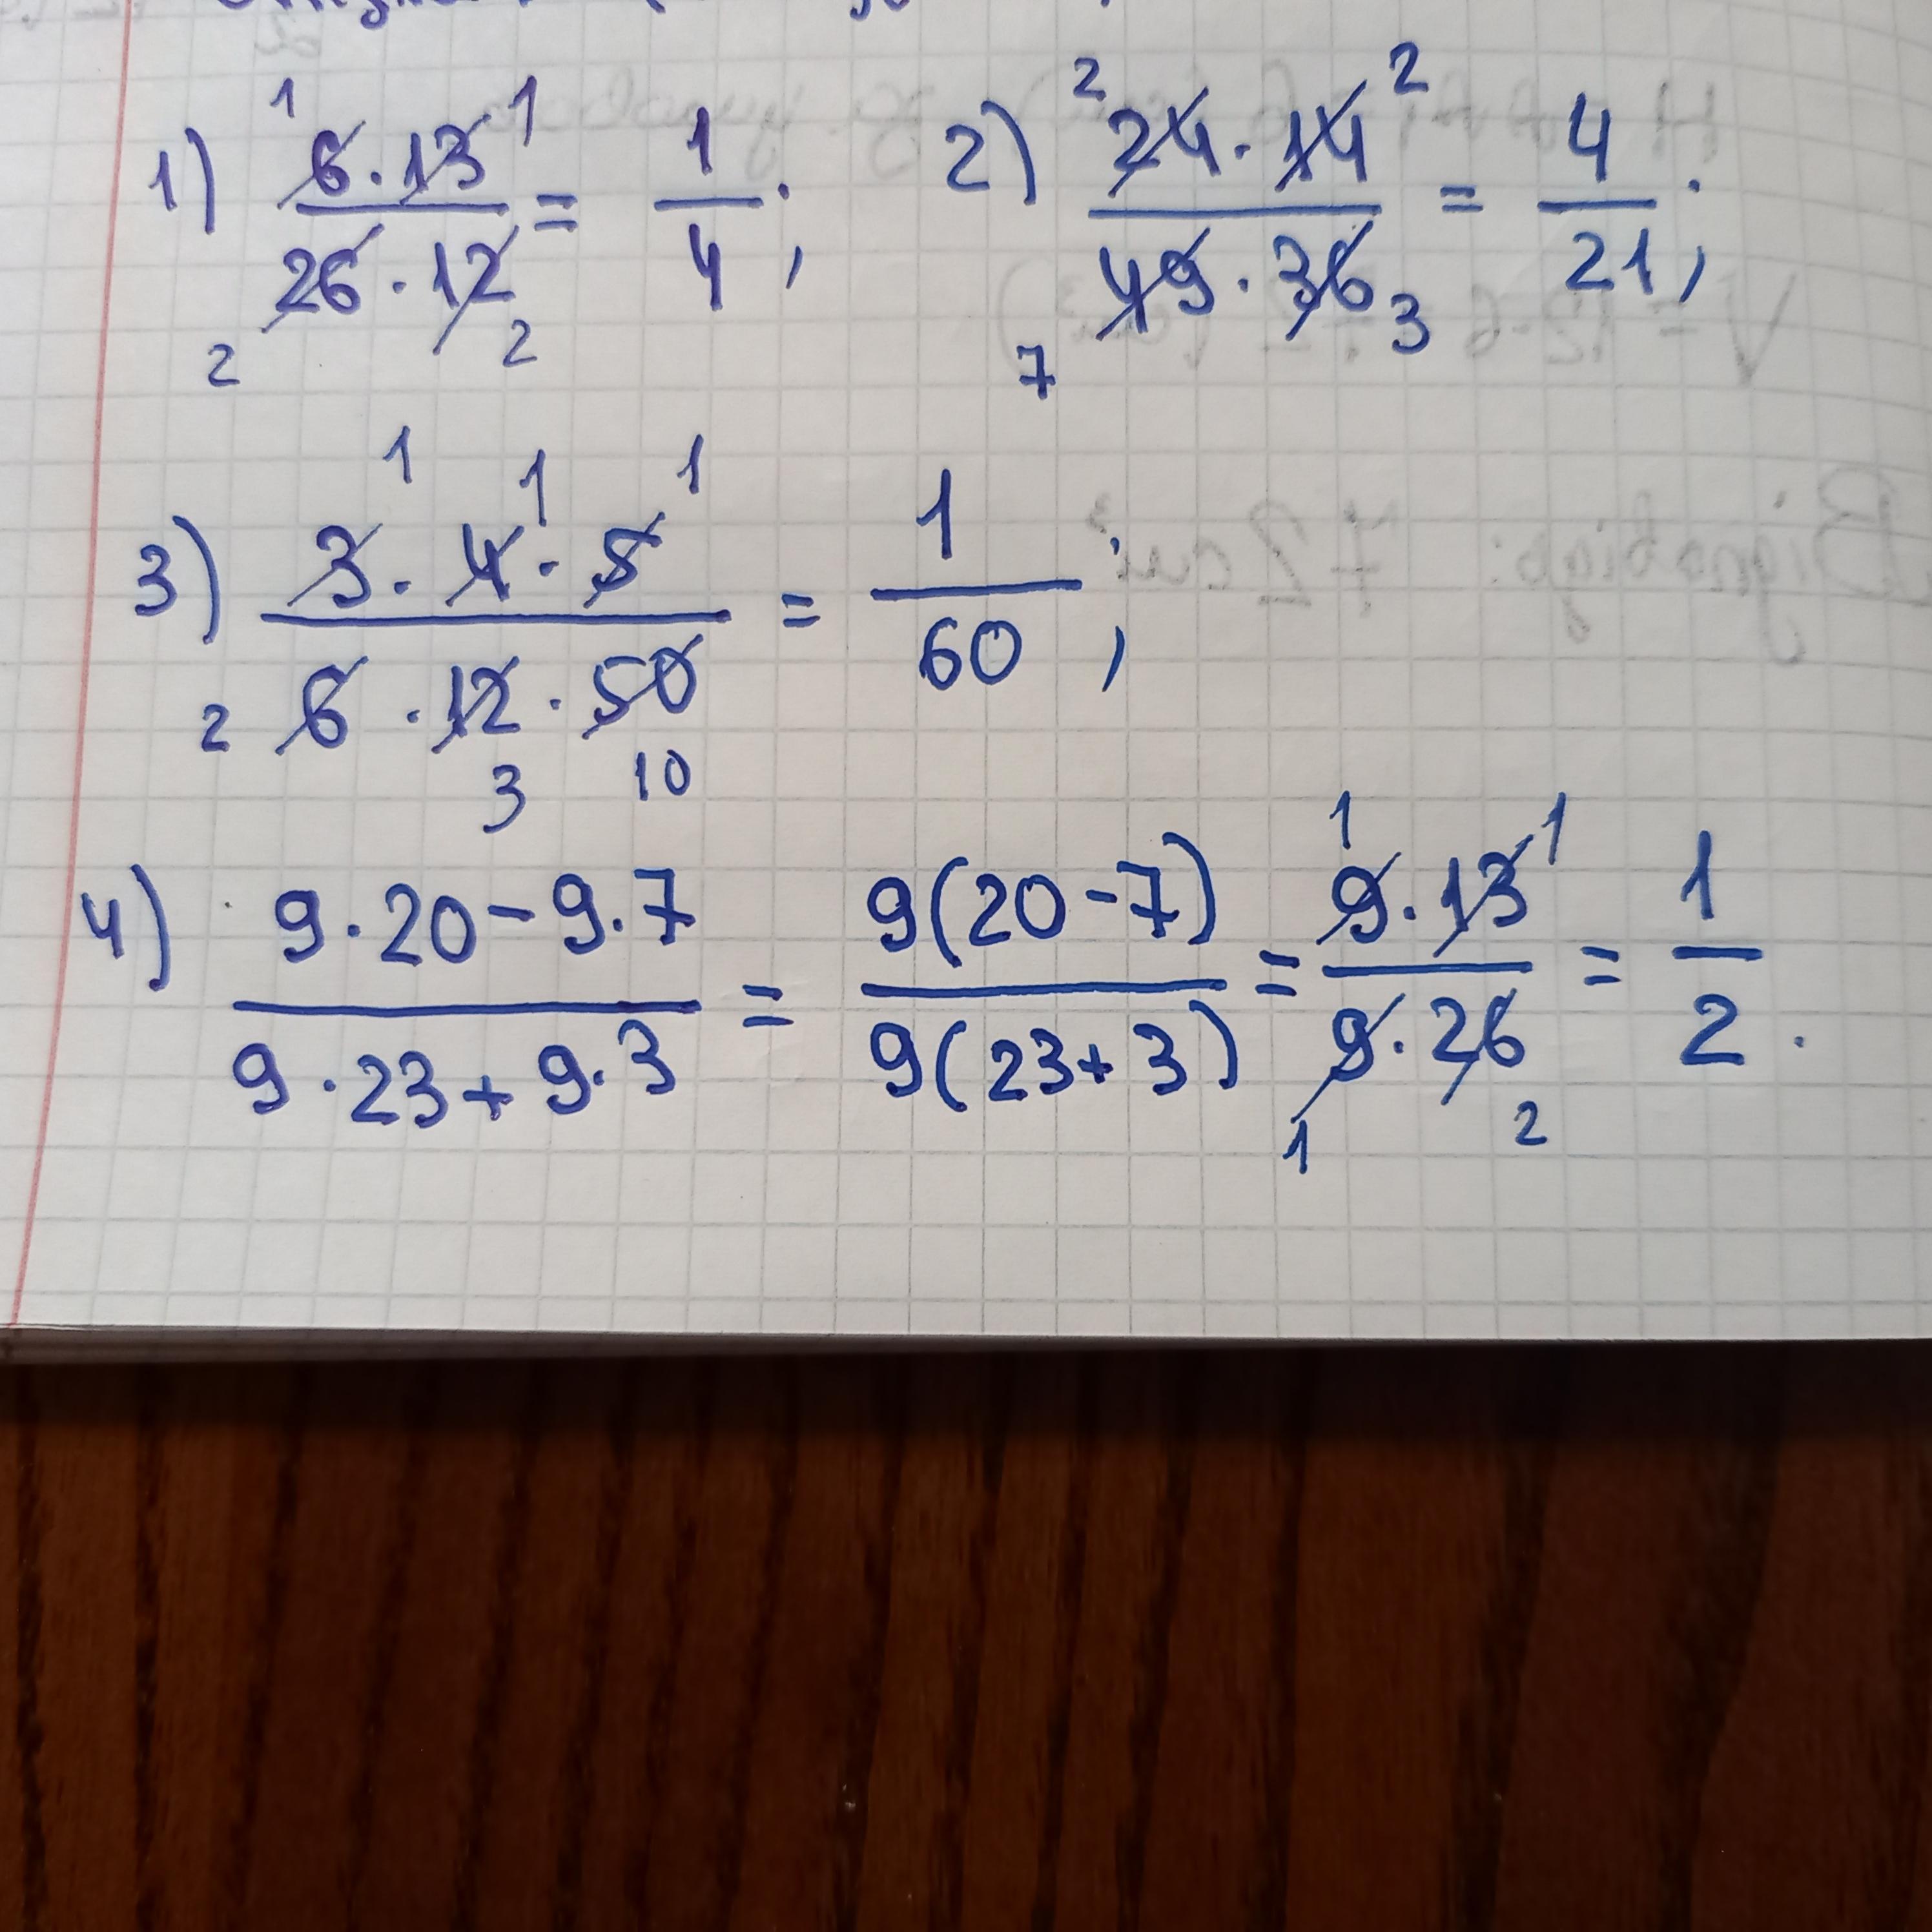 1) 6·13/26·12 = 1/4; 2) 24·14/49·36 = 4/21;
3) 3·4·5/6·12·50 = 1/60;
4) 9·20-9·7/9·23+9·3 = 9(20-7)/9(23+3) = 9·13/9·26 = 1/2.